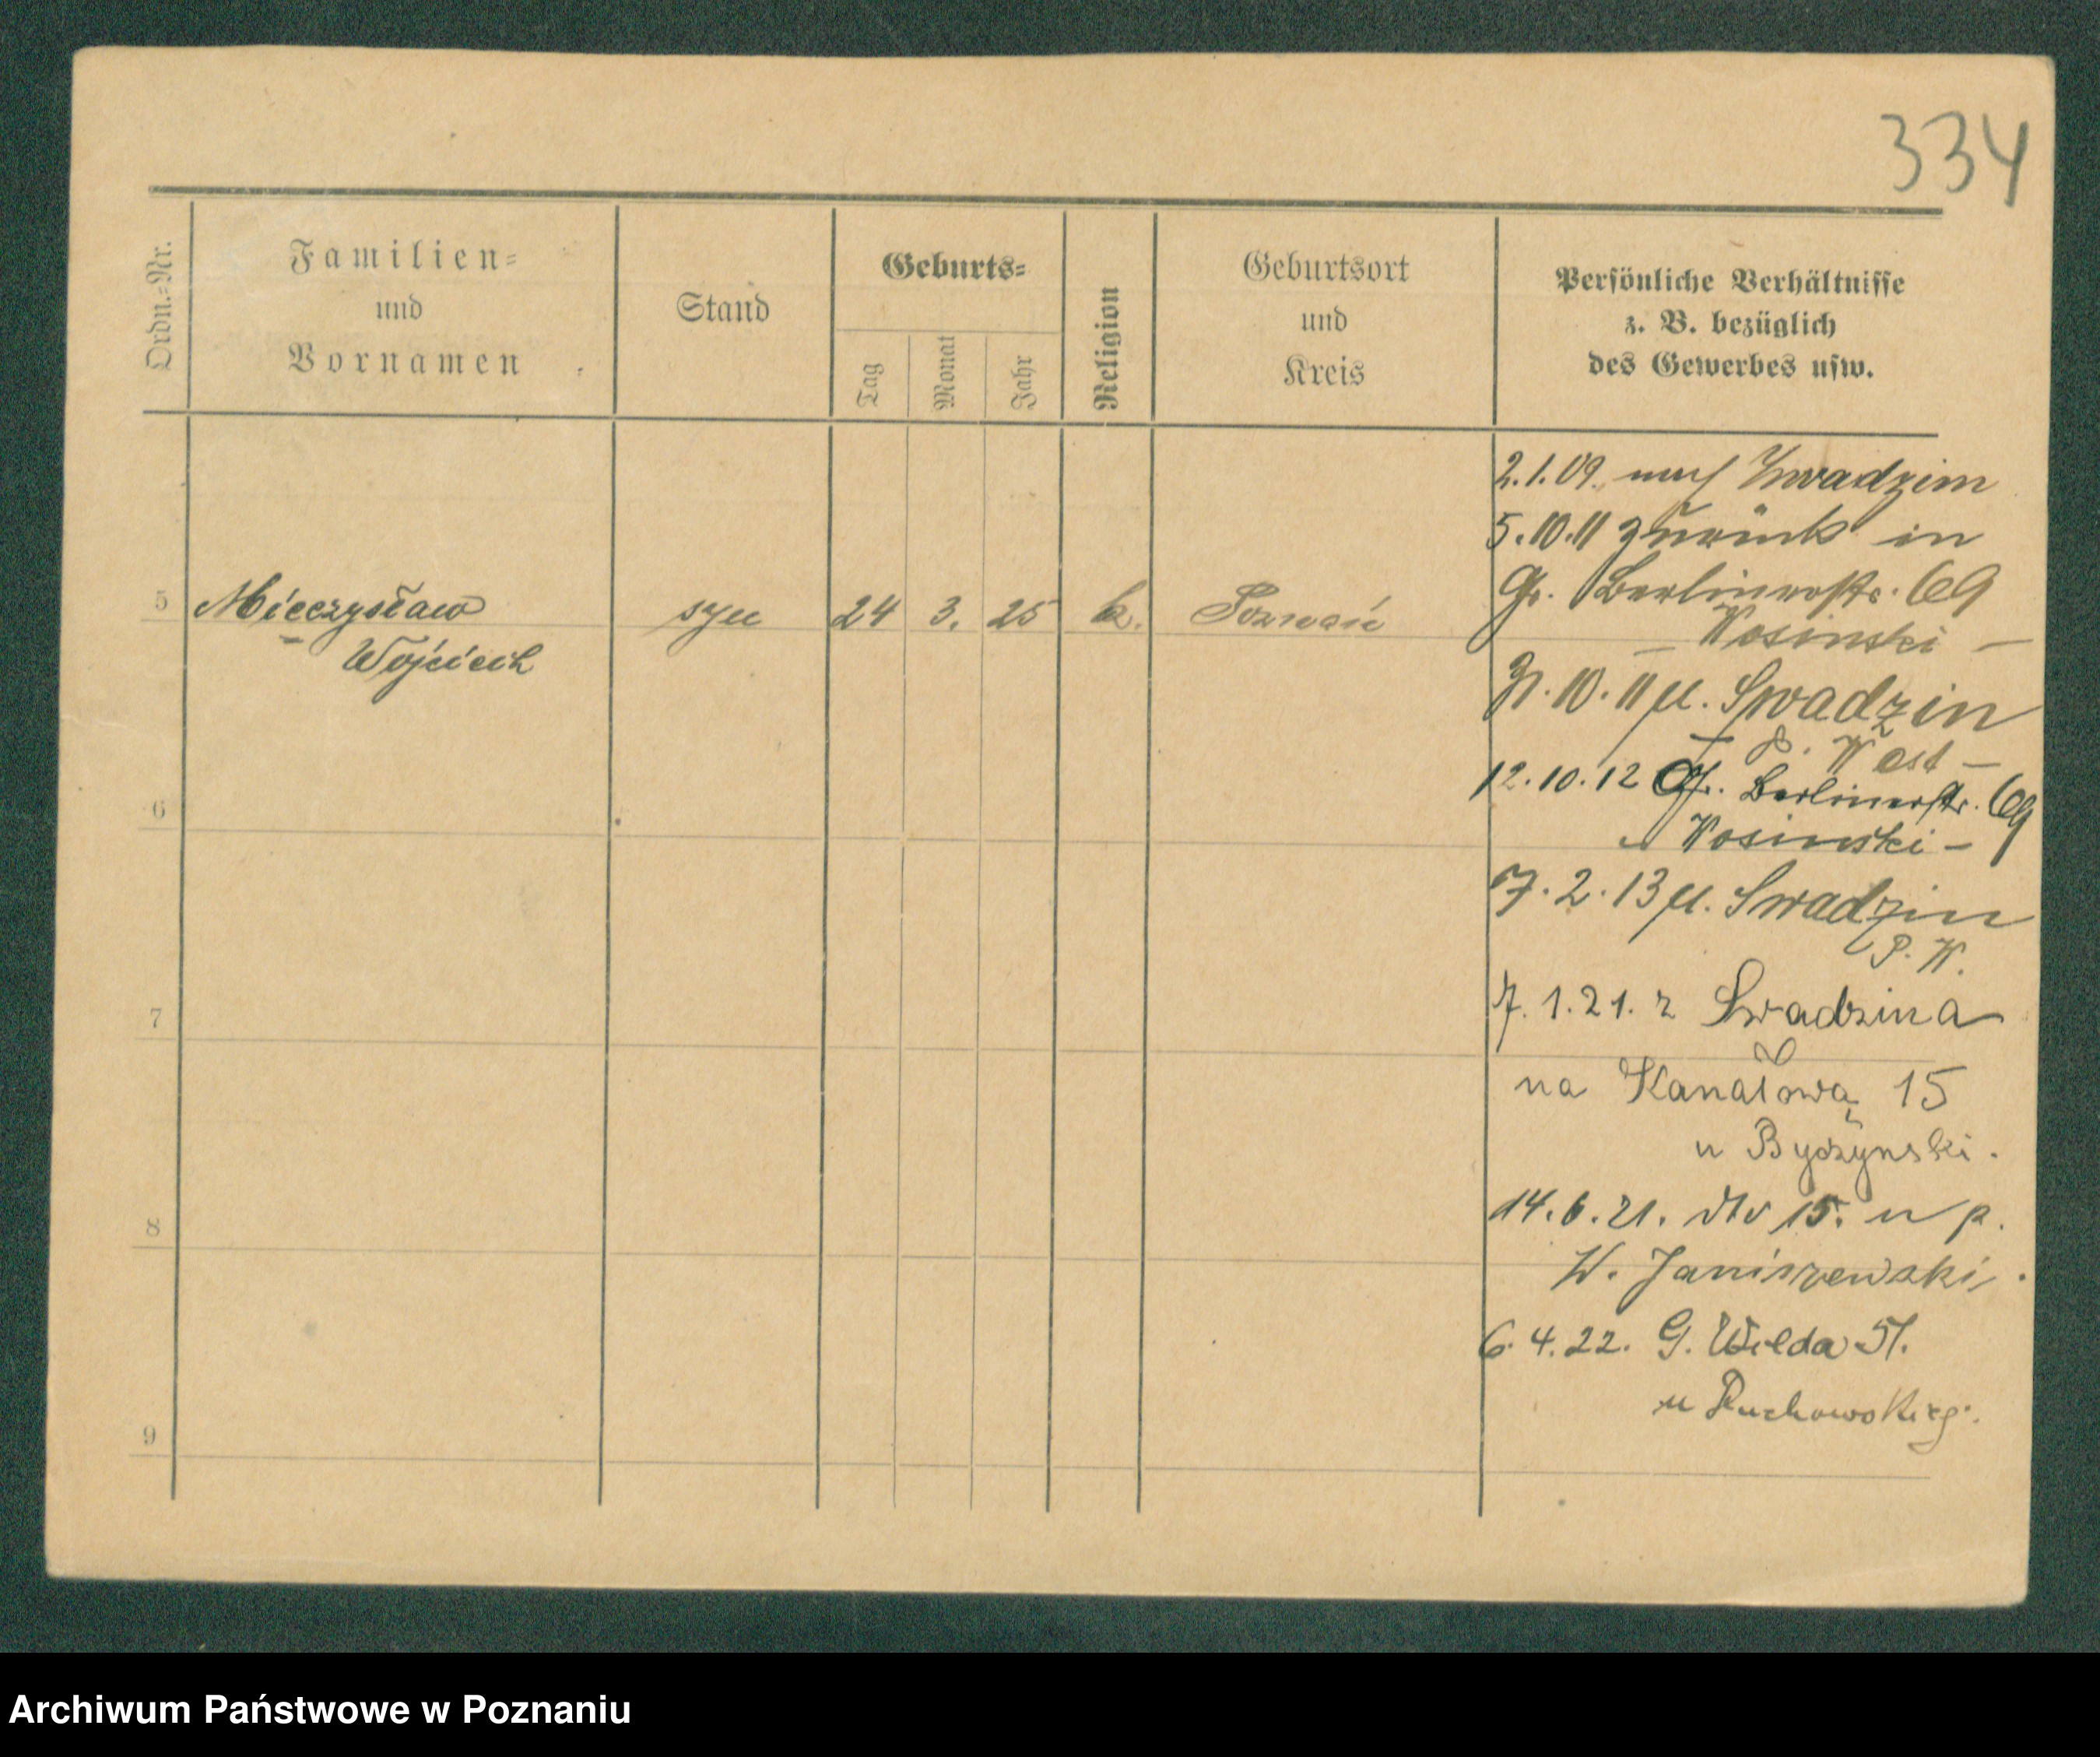 334
Ordn.=Nr.
Familien=
und
Vornamen
Stand
Geburts=
Tag
Monat
Jahr
Religion
Geburtsort
und
Kreis
Persönliche Verhältnisse
z. B. bezüglich
des Gewerbes usw.
2.1.09. nach Swadzim
5.10.11 zurück in
Gr. Berlinerstr. 69
— Kosinski —
5 Mieczysław syn 24 3. 25 k. Poznań
Wojciech
31.10.11 n. Swadzin
— P. West —
12.10.12 Gr. Berlinerstr. 69
Kosinski —
6
7.2.13 n. Swadzin
P. W.
7
7.1.21. z Swadzina
na Kanałową 15
u Bydzynski.
8
14.6.21. dto 15. u p.
W. Janiszewski.
6.4.22. G. Wilda 51.
u
9
Archiwum Państwowe w Poznaniu